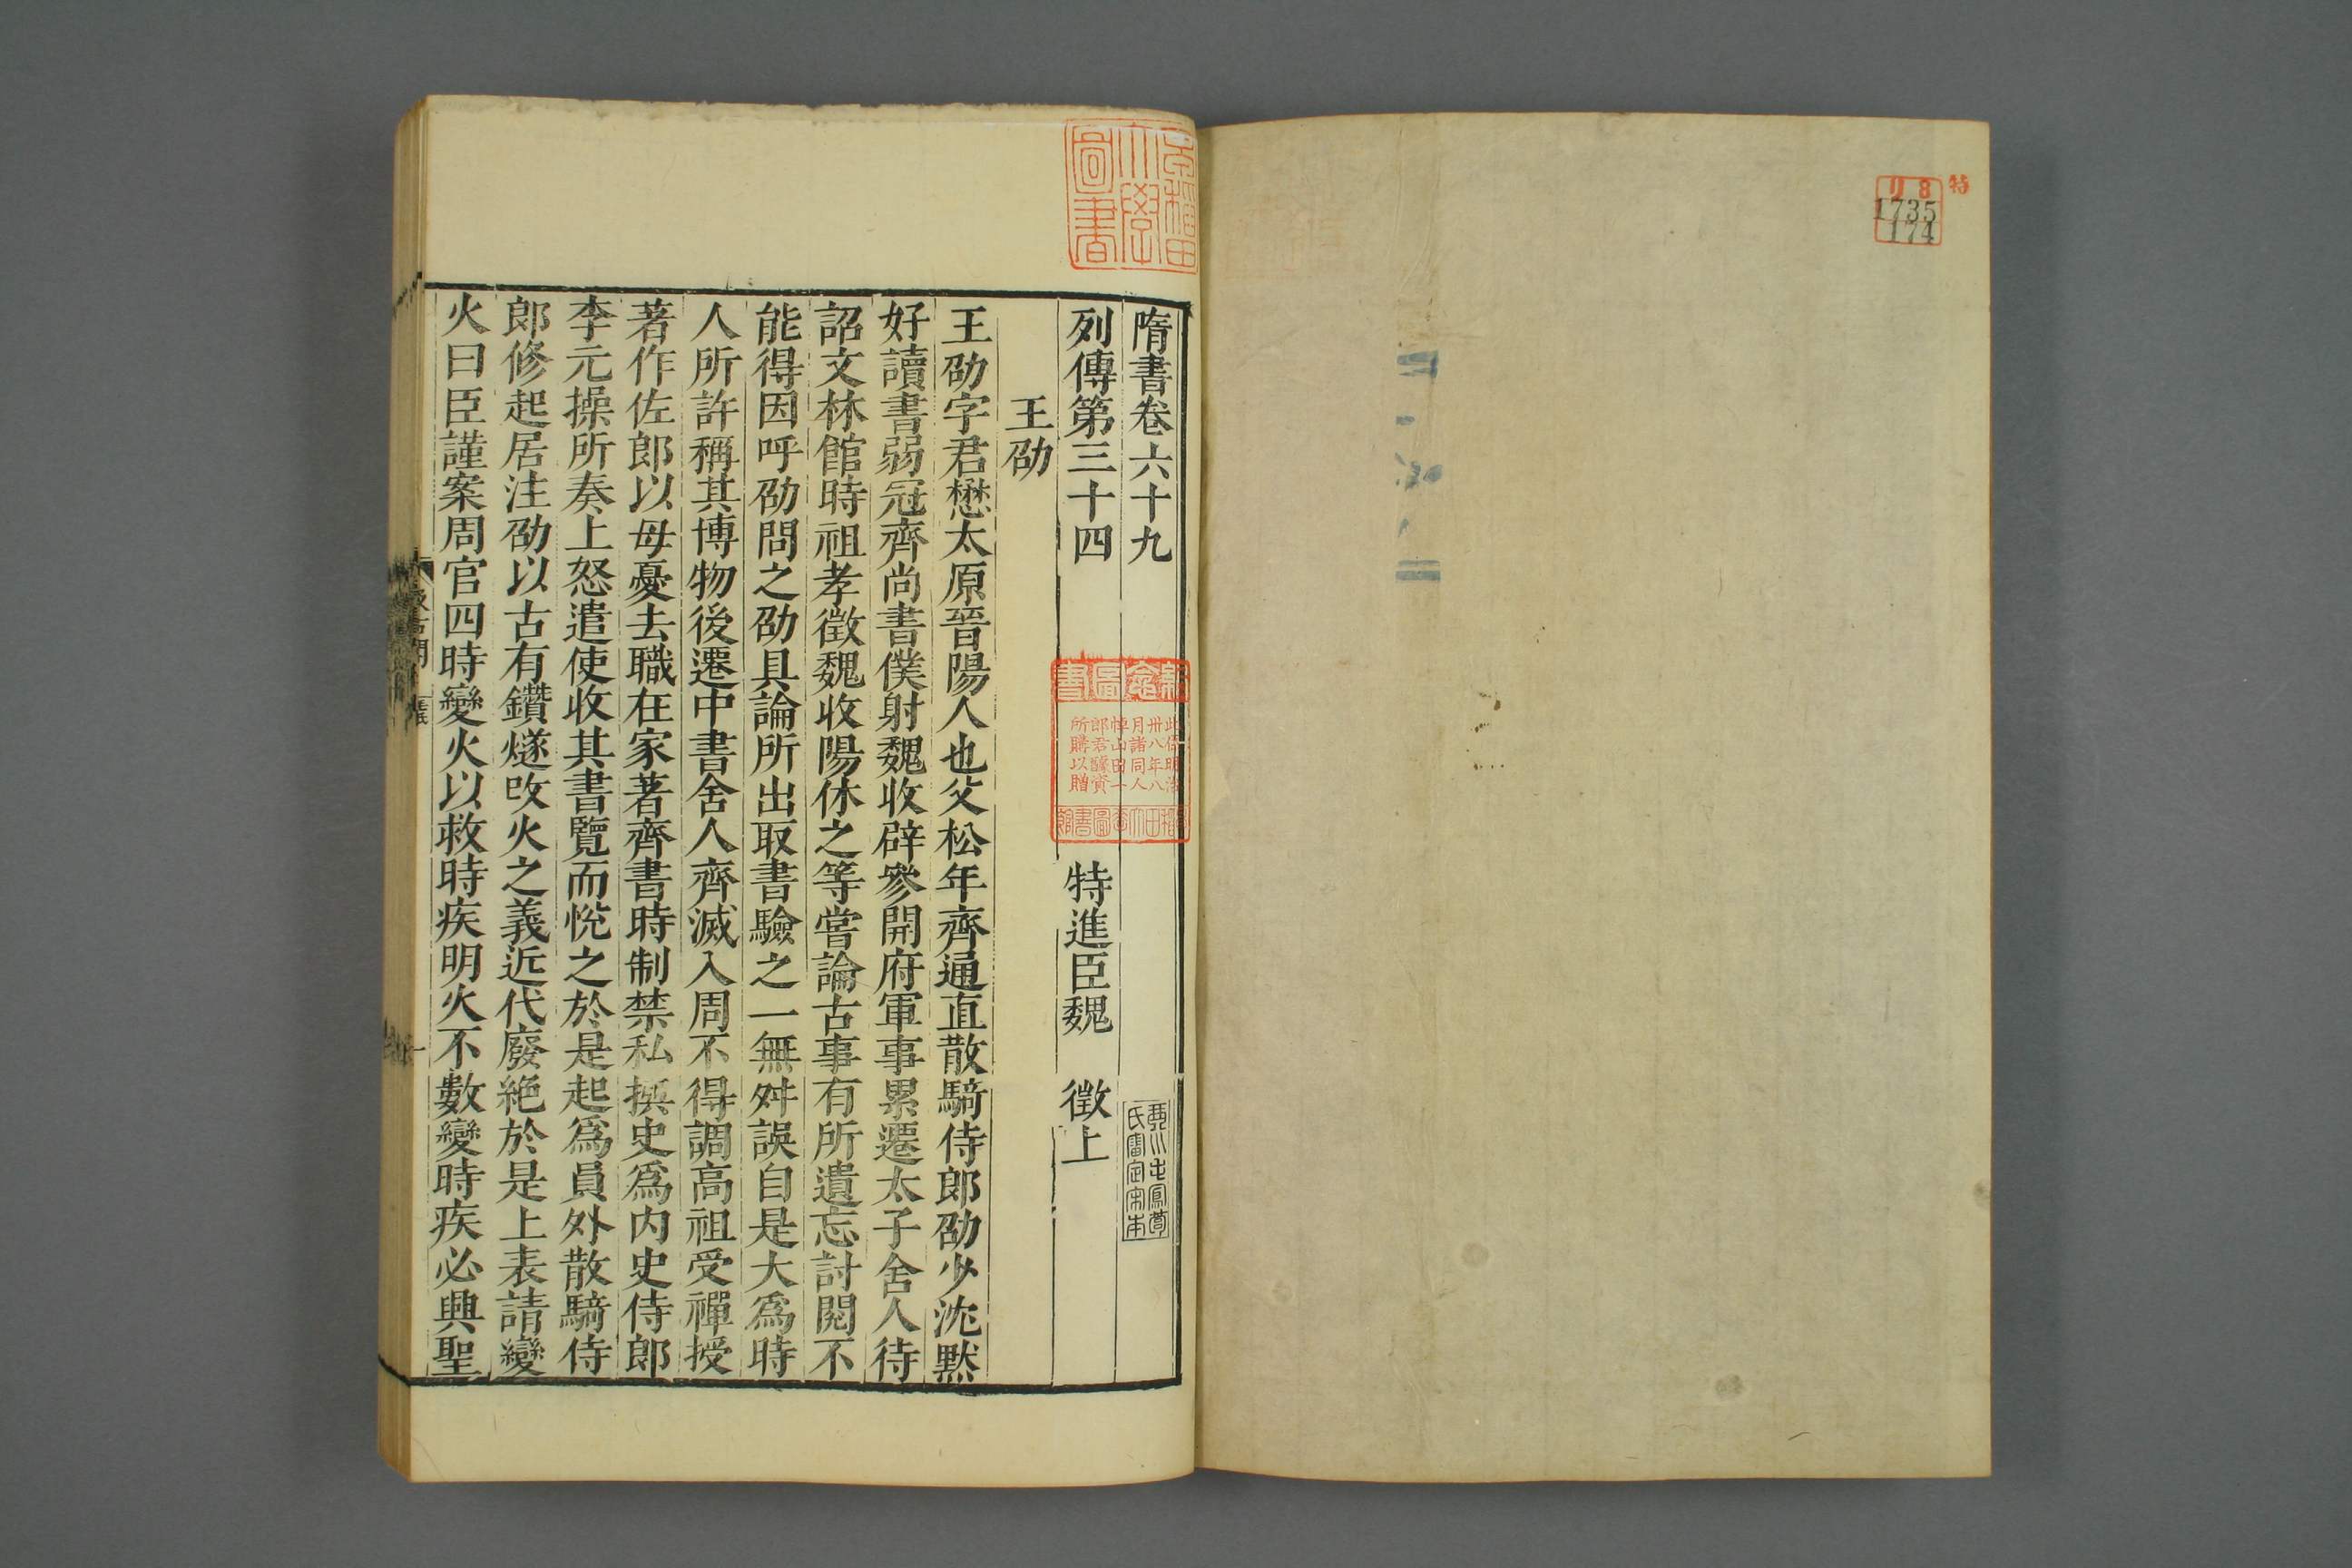 特
リ8
1735
174
隋書卷六十九
列傳第三十四
特進臣魏 徵上
王劭
王劭字君懋太原晉陽人也父松年齊通直散騎侍郎劭少沈默
好讀書弱冠齊尚書僕射魏收辟參開府軍事累遷太子舍人待
詔文林館時祖孝徵魏收陽休之等嘗論古事有所遺忘討閱不
能得因呼劭問之劭具論所出取書驗之一無舛誤自是大爲時
人所許稱其博物後遷中書舍人齊滅入周不得調高祖受禪授
著作佐郎以母憂去職在家著齊書時制禁私撰史爲內史侍郎
李元操所奏上怒遣使收其書覽而悅之於是起爲員外散騎侍
郎修起居注劭以古有鑽燧改火之義近代廢絶於是上表請變
火曰臣謹案周官四時變火以救時疾明火不數變時疾必興聖
早稻田
大學
圖書
所購以贈
氏審定宋本